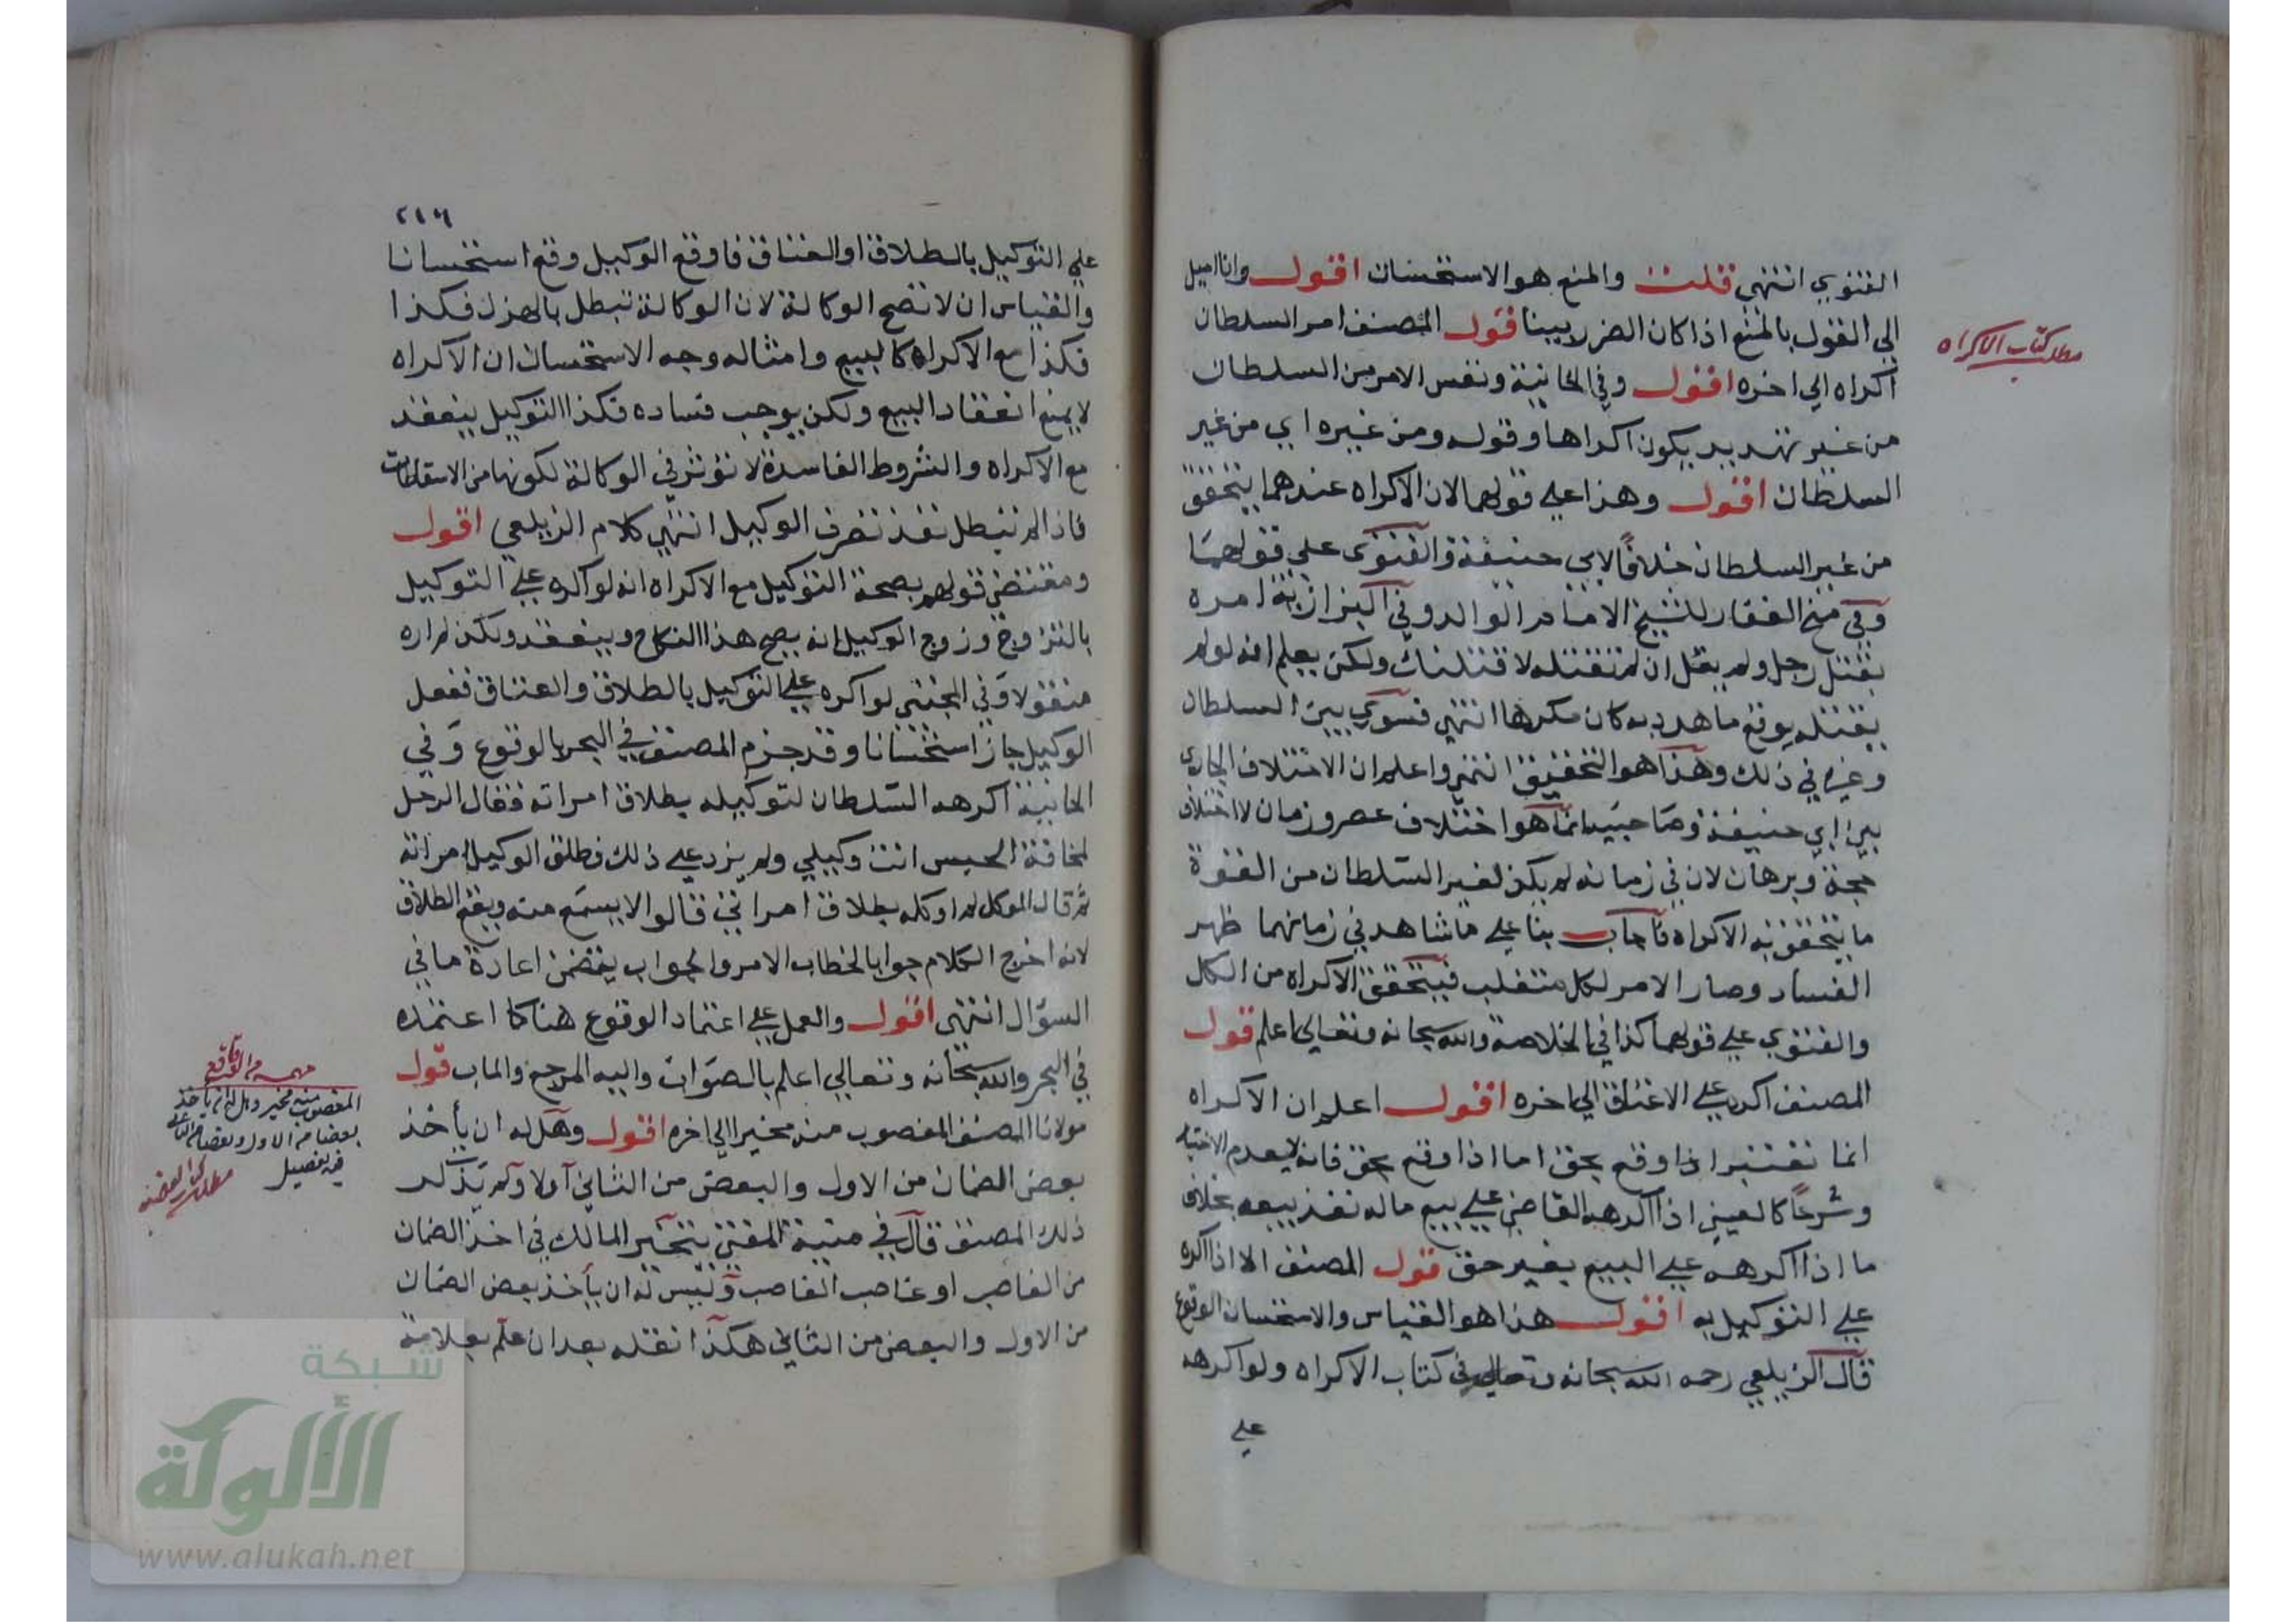 الفتوي انتهي قلت والمنع هو الاستحسان اقول وانا اميل
الي القول بالمنع اذا كان الضرر بينا قول المصنف امر السلطان
اكراه الي اخره اقول وفي الخانية ونفس الامر من السلطان
من غير تهديد يكون اكراها وقوله ومن غيره اي من غير
السلطان اقول وهذا علي قولهما لان الاكراه عندهما يتحقق
من غير السلطان خلافًا لابي حنيفة والفتوي علي قولهما
وفي منح الغفار للشيخ الامام الوالد وفي البزازية امره
بقتل رجل ولم يقل ان لم تقتله لاقتلنك ولكن يعلم انه لو لم
يقتله يوقع ما هدد به كان مكرها انتهي فسوي بين السلطان
وغيره في ذلك وهذا هو التحقيق انتهي واعلم ان الاختلاف الجاري
بين ابي حنيفة وصاحبيه انما هو اختلاف عصر وزمان لا اختلاف
حجة وبرهان لان في زمانه لم يكن لغير السلطان من القوة
ما يتحقق به الاكراه فاجاب بنا علي ما شاهد في زمانهما ظهر
الفساد وصار الامر لكل متغلب فيتحقق الاكراه من الكل
والفتوي علي قولهما كذا في الخلاصة والله سبحانه وتعالي اعلم قول
المصنف اكره علي الاعتاق الي اخره اقول اعلم ان الاكراه
انما تعتبر اذا وقع بحق اما اذا وقع بحق فانه لا يعدم الاختيار
وشرعًا كالعنين اذا اكرهه القاضي علي بيع ماله نفذ بيعه بخلاف
ما اذا اكرهه علي البيع بغير حق قول المصنف الا اذا اكره
علي التوكيل به اقول هذا هو القياس والاستحسان الوقوع
قال الزيلعي رحمه الله سبحانه وتعالي في كتاب الاكراه ولو اكرهه
علي
مطلب كتاب الاكراه
٢١٦
علي التوكيل بالطلاق او العتاق فاوقع الوكيل وقع استحسانا
والقياس ان لا تصح الوكالة لان الوكالة تبطل بالهزل فكذا
فكذا مع الاكراه كالبيع وامثاله وجه الاستحسان ان الاكراه
لا يمنع انعقاد البيع ولكن يوجب فساده فكذا التوكيل ينعقد
مع الاكراه والشروط الفاسدة لا تؤثر في الوكالة لكونها من الاسقاطات
فاذا لم تبطل نفذ تصرف الوكيل انتهي كلام الزيلعي اقول
ومقتضي قولهم بصحة التوكيل مع الاكراه انه لو اكره علي التوكيل
بالتزاوج وزوج الوكيل انه يصح هذا النكاح وينعقد ولكن لم اره
منقولا وفي المجتبي لو اكره علي التوكيل بالطلاق والعتاق ففعل
الوكيل جاز استحسانا وقد جزم المصنف في البحر بالوقوع وفي
الخانية اكرهه السلطان لتوكيله بطلاق امراته فقال الرجل
لمخافة الحبس انت وكيلي ولم يزد علي ذلك فطلق الوكيل امراته
ثم قال الموكل لم اوكله بطلاق امراتي قالوا لا يسمع منه ويقع الطلاق
لانه اخرج الكلام جوابا لخطاب الامر والجواب يتضمن اعادة ما في
السؤال انتهي اقول والعمل علي اعتماد الوقوع هنا كما اعتمده
في البحر والله سبحانه وتعالي اعلم بالصواب واليه المرجع والماب قول
مولانا المصنف المغصوب منه مخير الي اخره اقول وهل له ان يأخذ
بعض الضمان من الاول والبعض من الثاني اولا ولم يذكر
ذلك المصنف قال في منية المفتي يتخير المالك في اخذ الضمان
من الغاصب او غاصب الغاصب وليس له ان يأخذ بعض الضمان
من الاول والبعض من الثاني هكذا نقله بعد ان علم بعلامة
المغصوب منه مخير وهل له ان يأخذ
بعضا من الاول وبعضا من الثاني
فيه تفصيل
شبكة
الألوكة
www.alukah.net